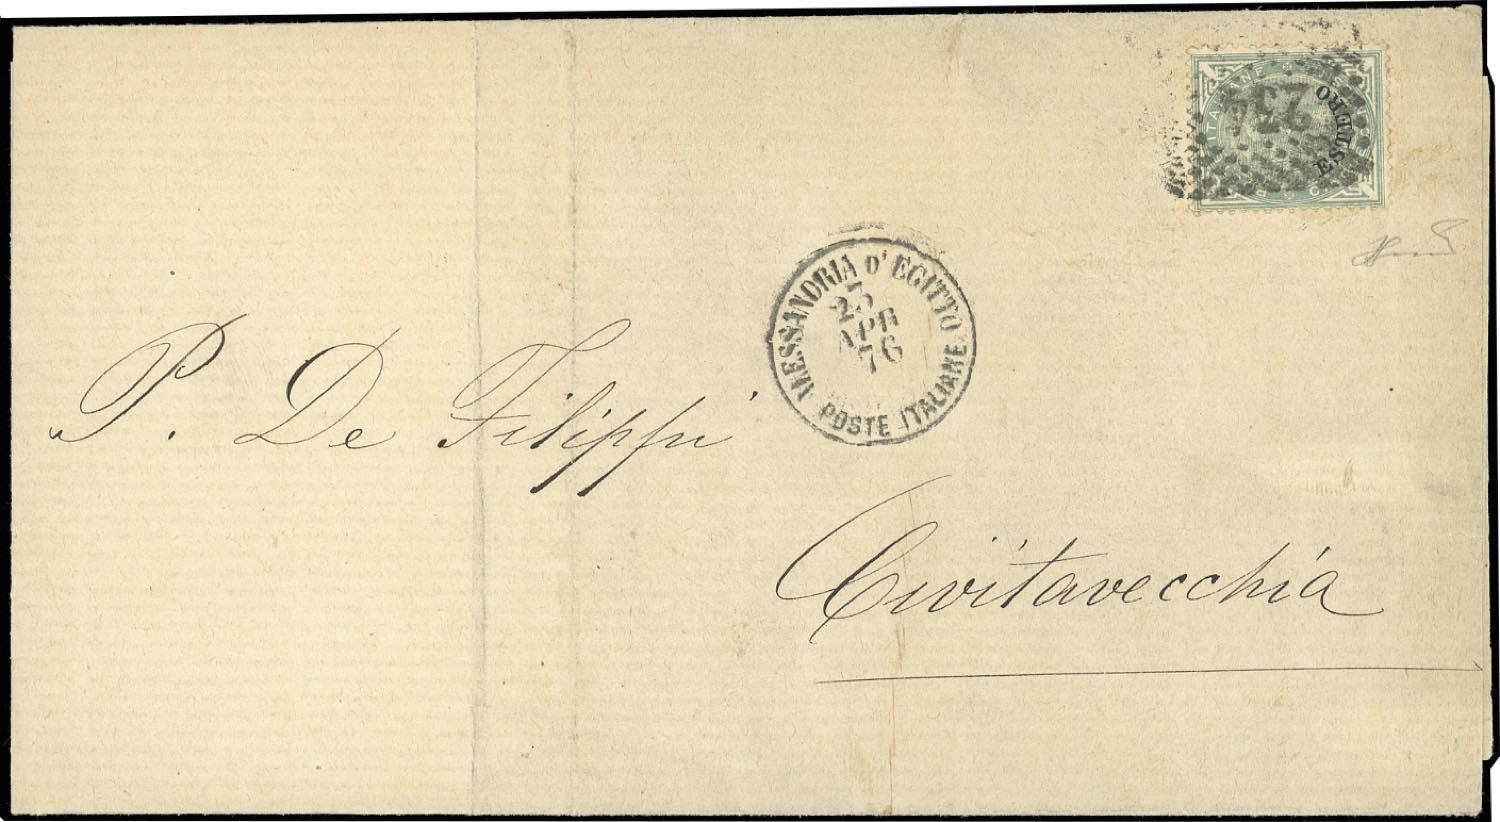 ESTERO
234
ALESSANDRIA D'EGITTO
23
APR
76
POSTE ITALIANE
P. De Filippi
Civitavecchia